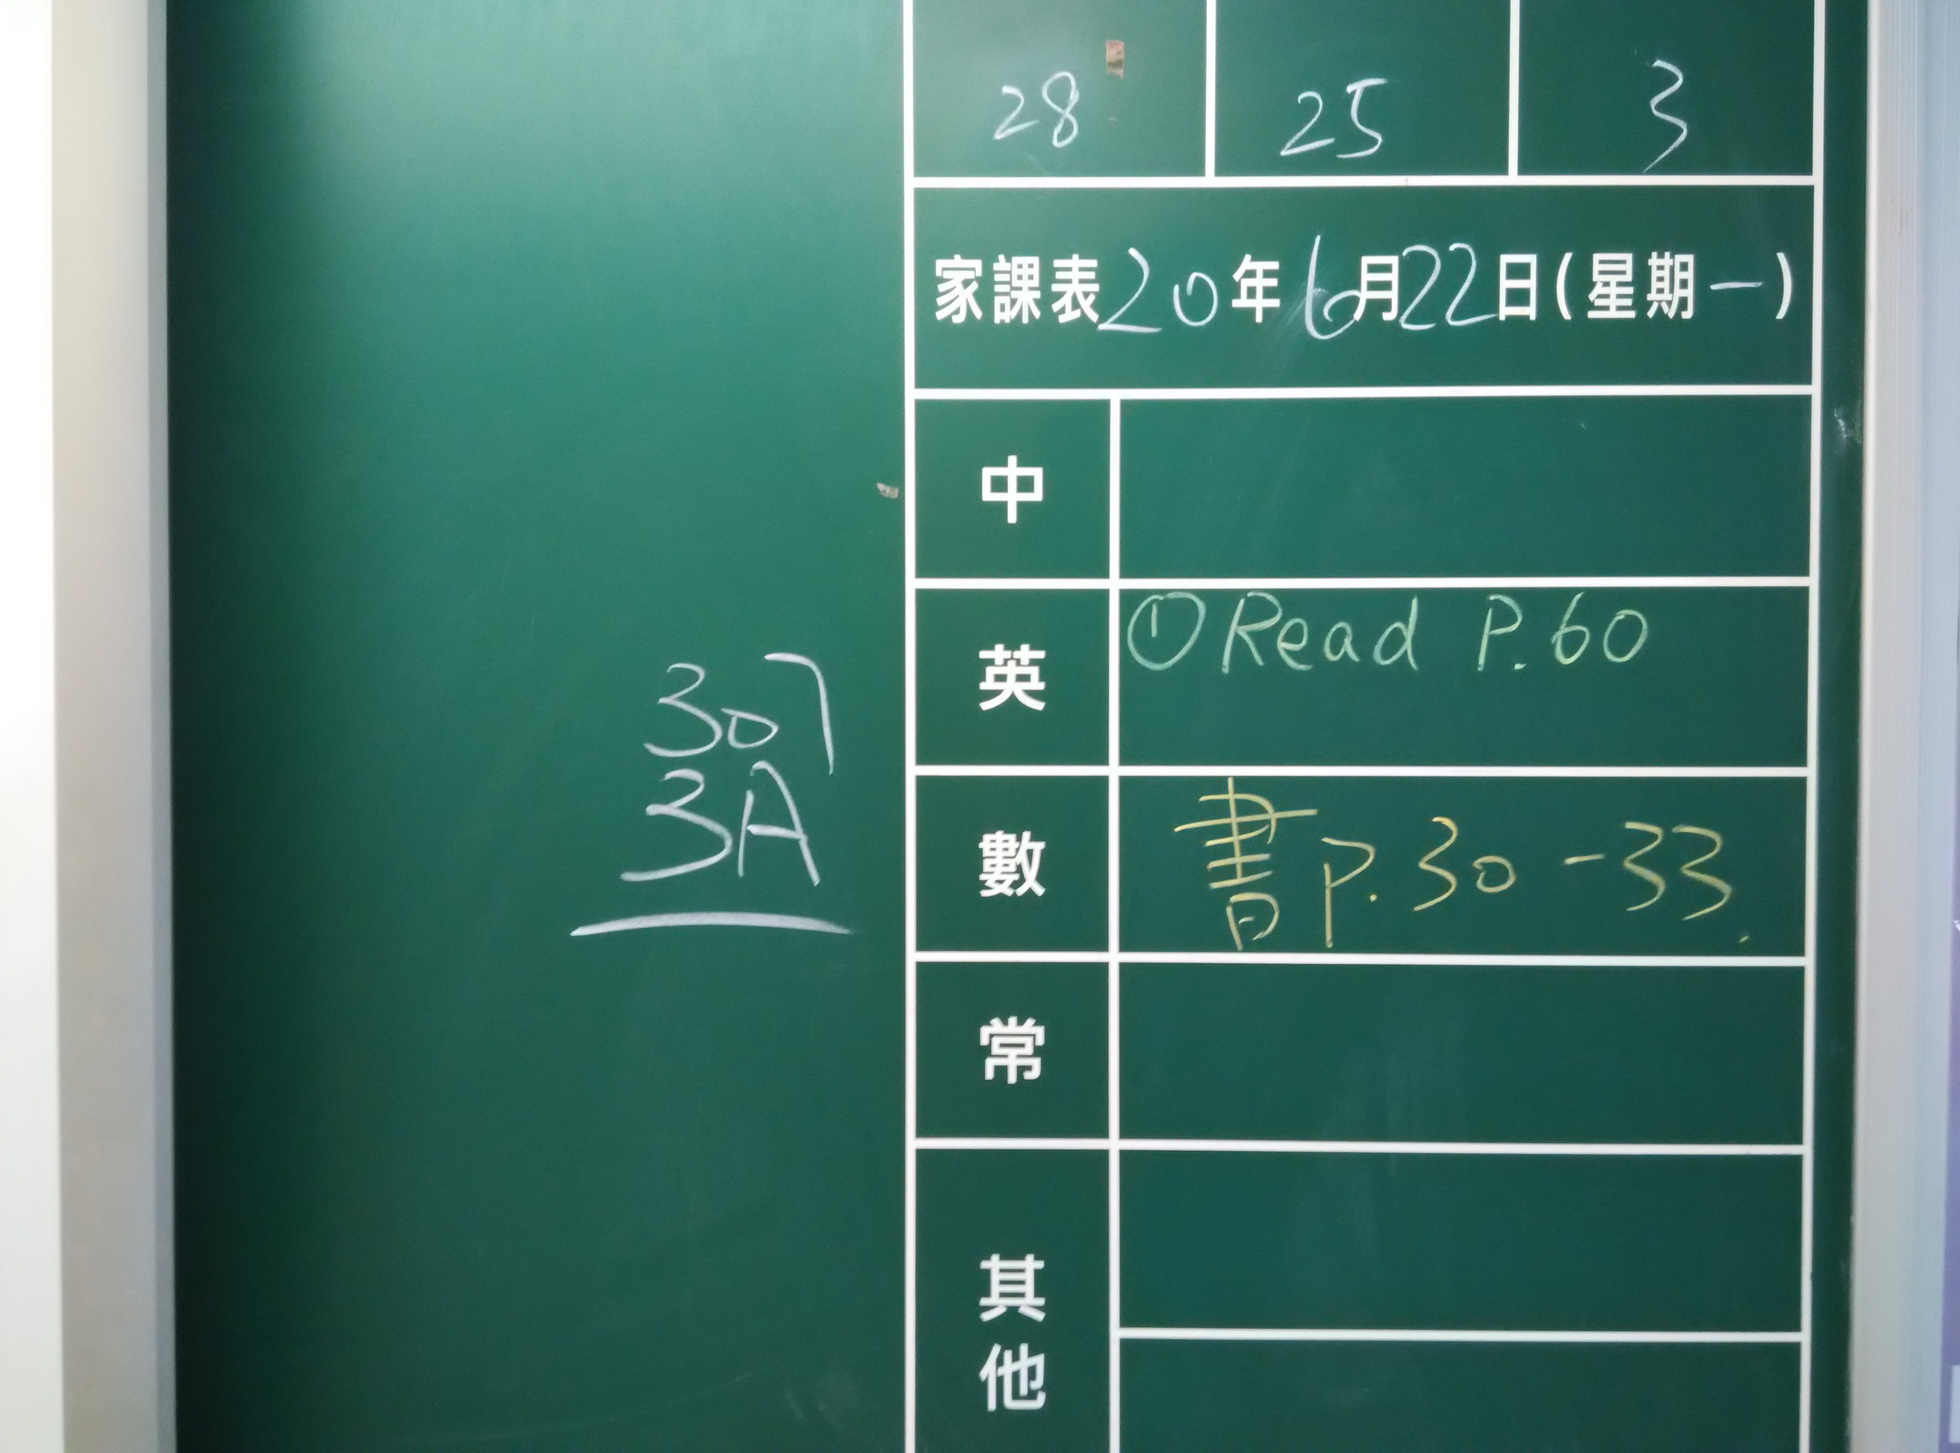 28 25 3
家課表20年6月22日(星期一)
中
英 ①Read P.60
307
3A
數 書 P.30-33.
常
其他